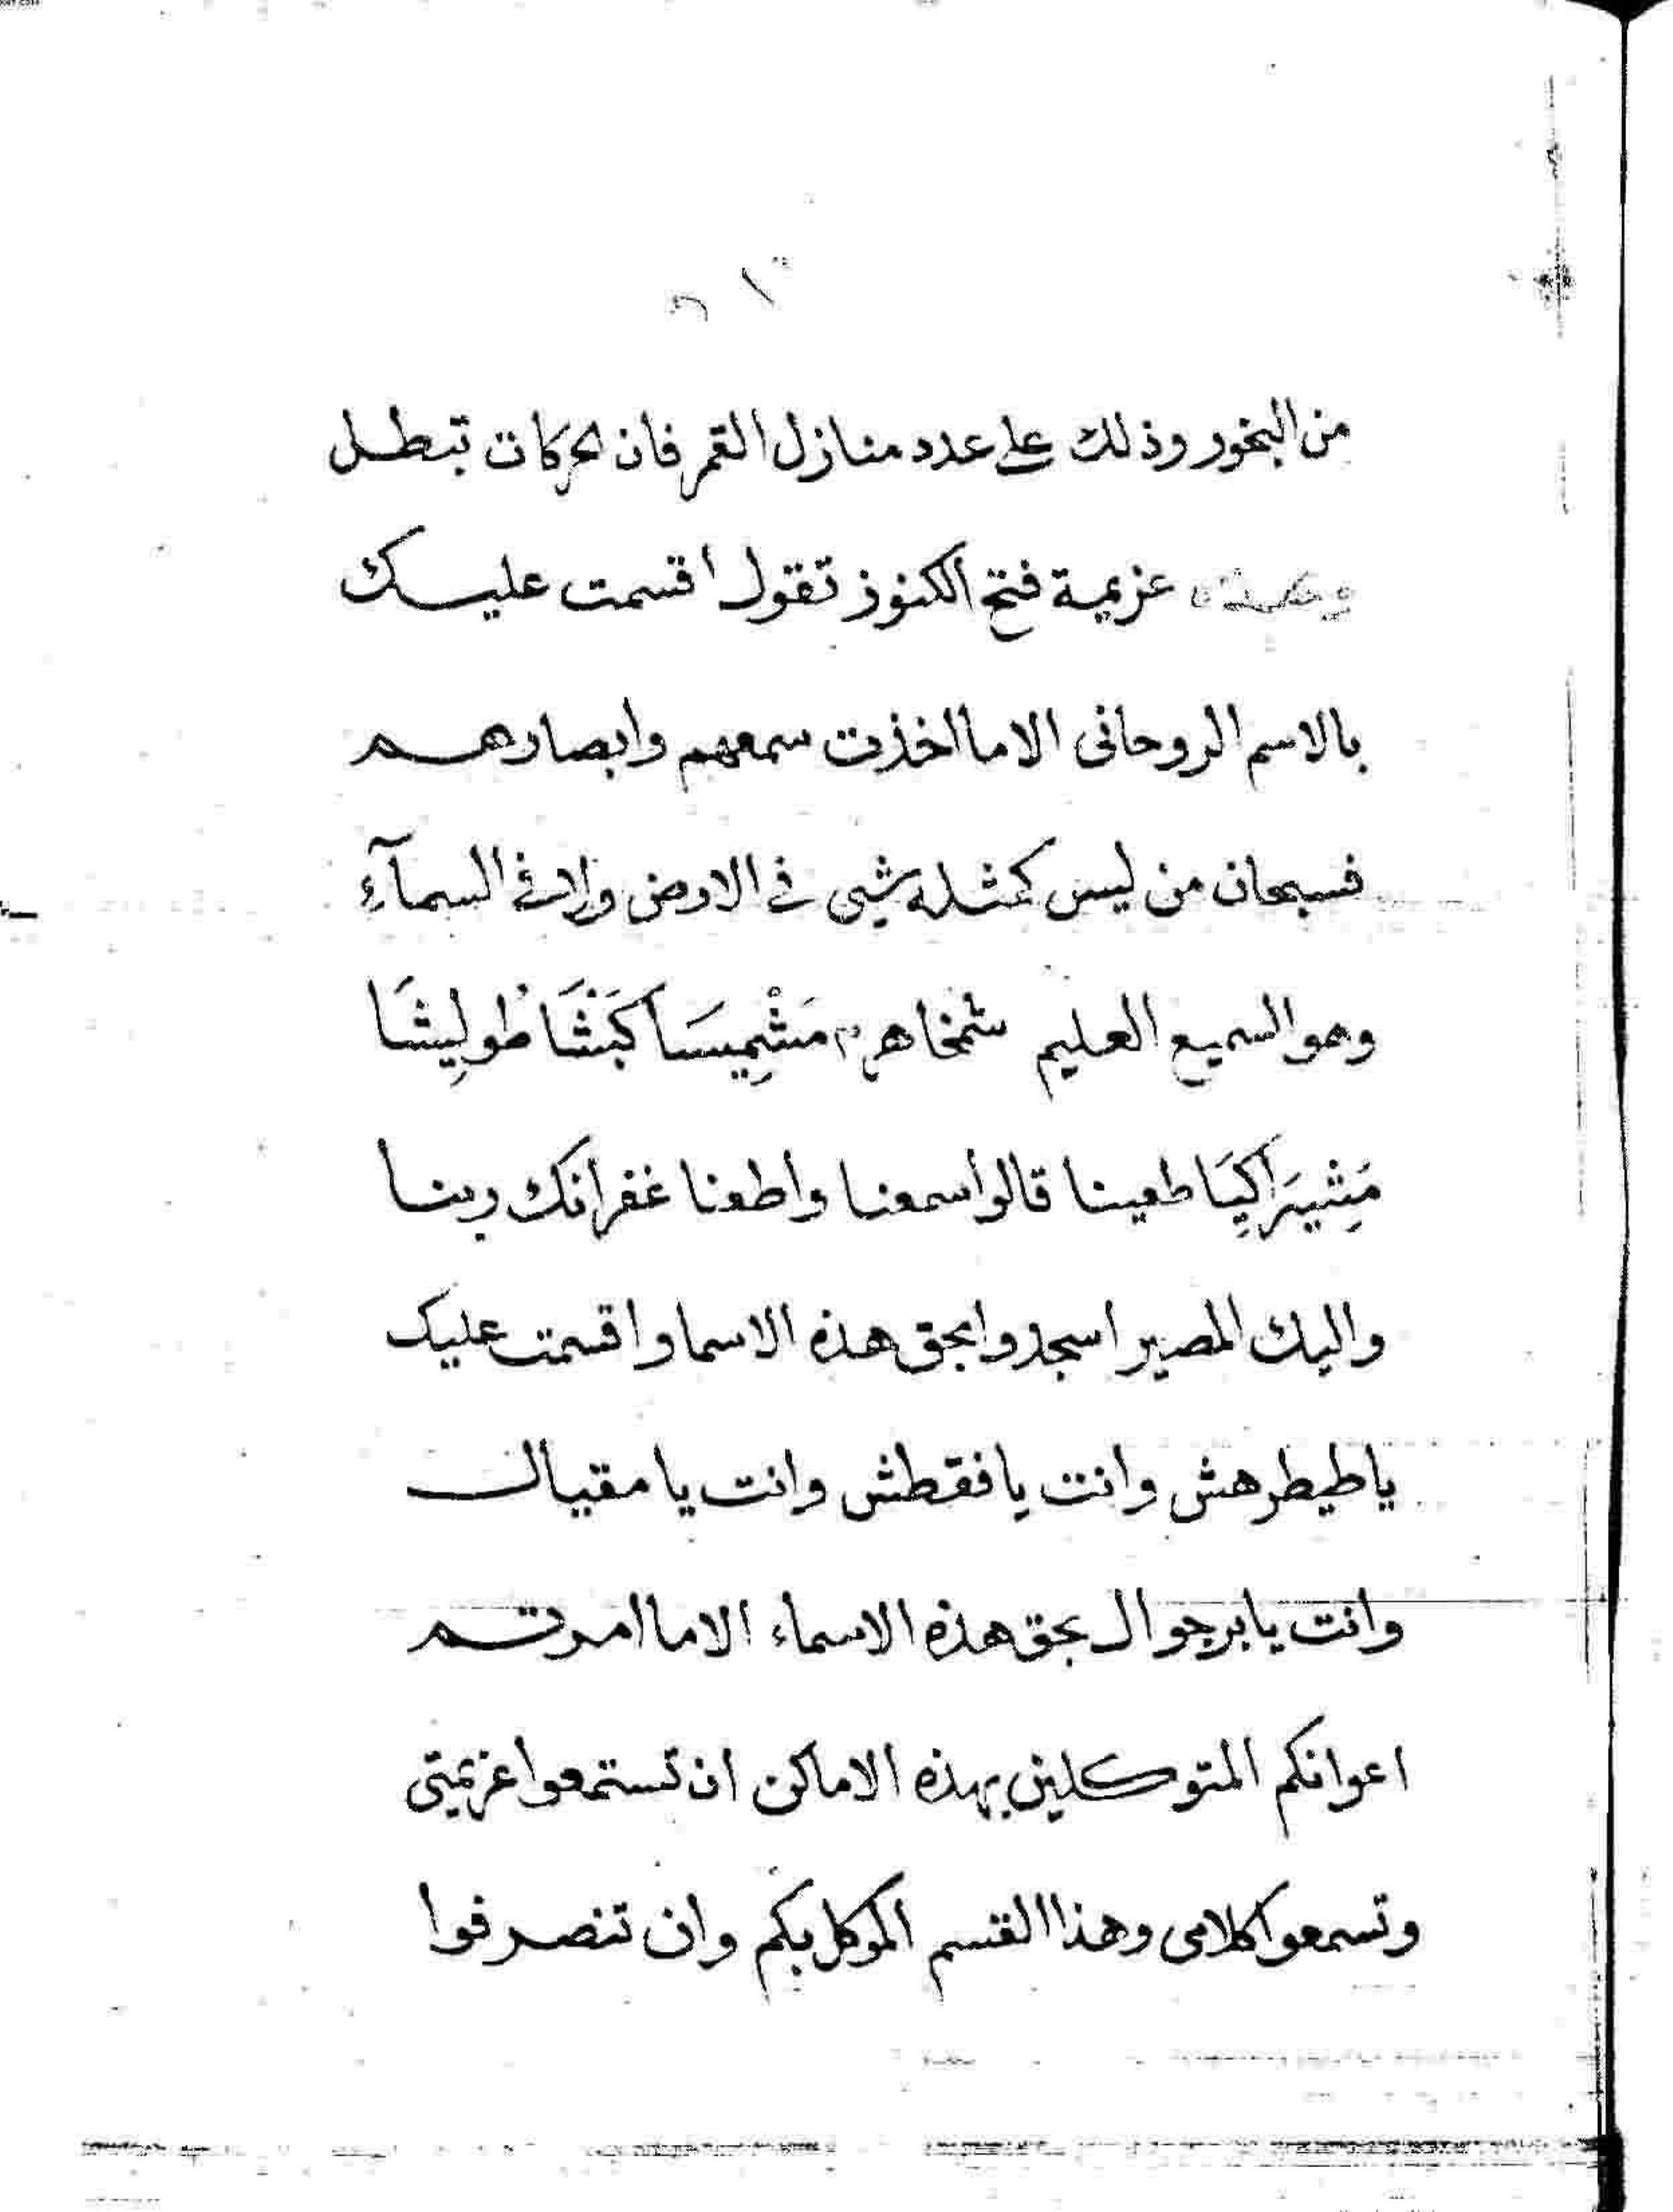 من البخور وذلك على عدد منازل القمر فان الحركات تبطل
وهذه عزيمة فتح الكنوز تقول اقسمت عليك
بالاسم الروحانى الاما اخذت سمعهم وابصارهم
فسبحان من ليس كمثله شيى فى الارض ولا فى السمآءِ
وهو السميع العليم شمخاهر مَشْمِيسَا كَبَشَا طُولِيشَا
مَشِيرَا كِيَا طعينا قالوا سمعنا واطعنا غفرانك ربنا
واليك المصير اسجدوا بحق هذه الاسما واقسمت عليك
ياطيطرهش وانت يا فقطش وانت يا مقيال
وانت يا برجوال بحق هذه الاسماء الاما امرتم
اعوانكم المتوكلين بهذه الاماكن ان تستمعوا عزيمتى
وتسمعوا كلامى وهذا القسم الموكل بكم وان تنصرفوا